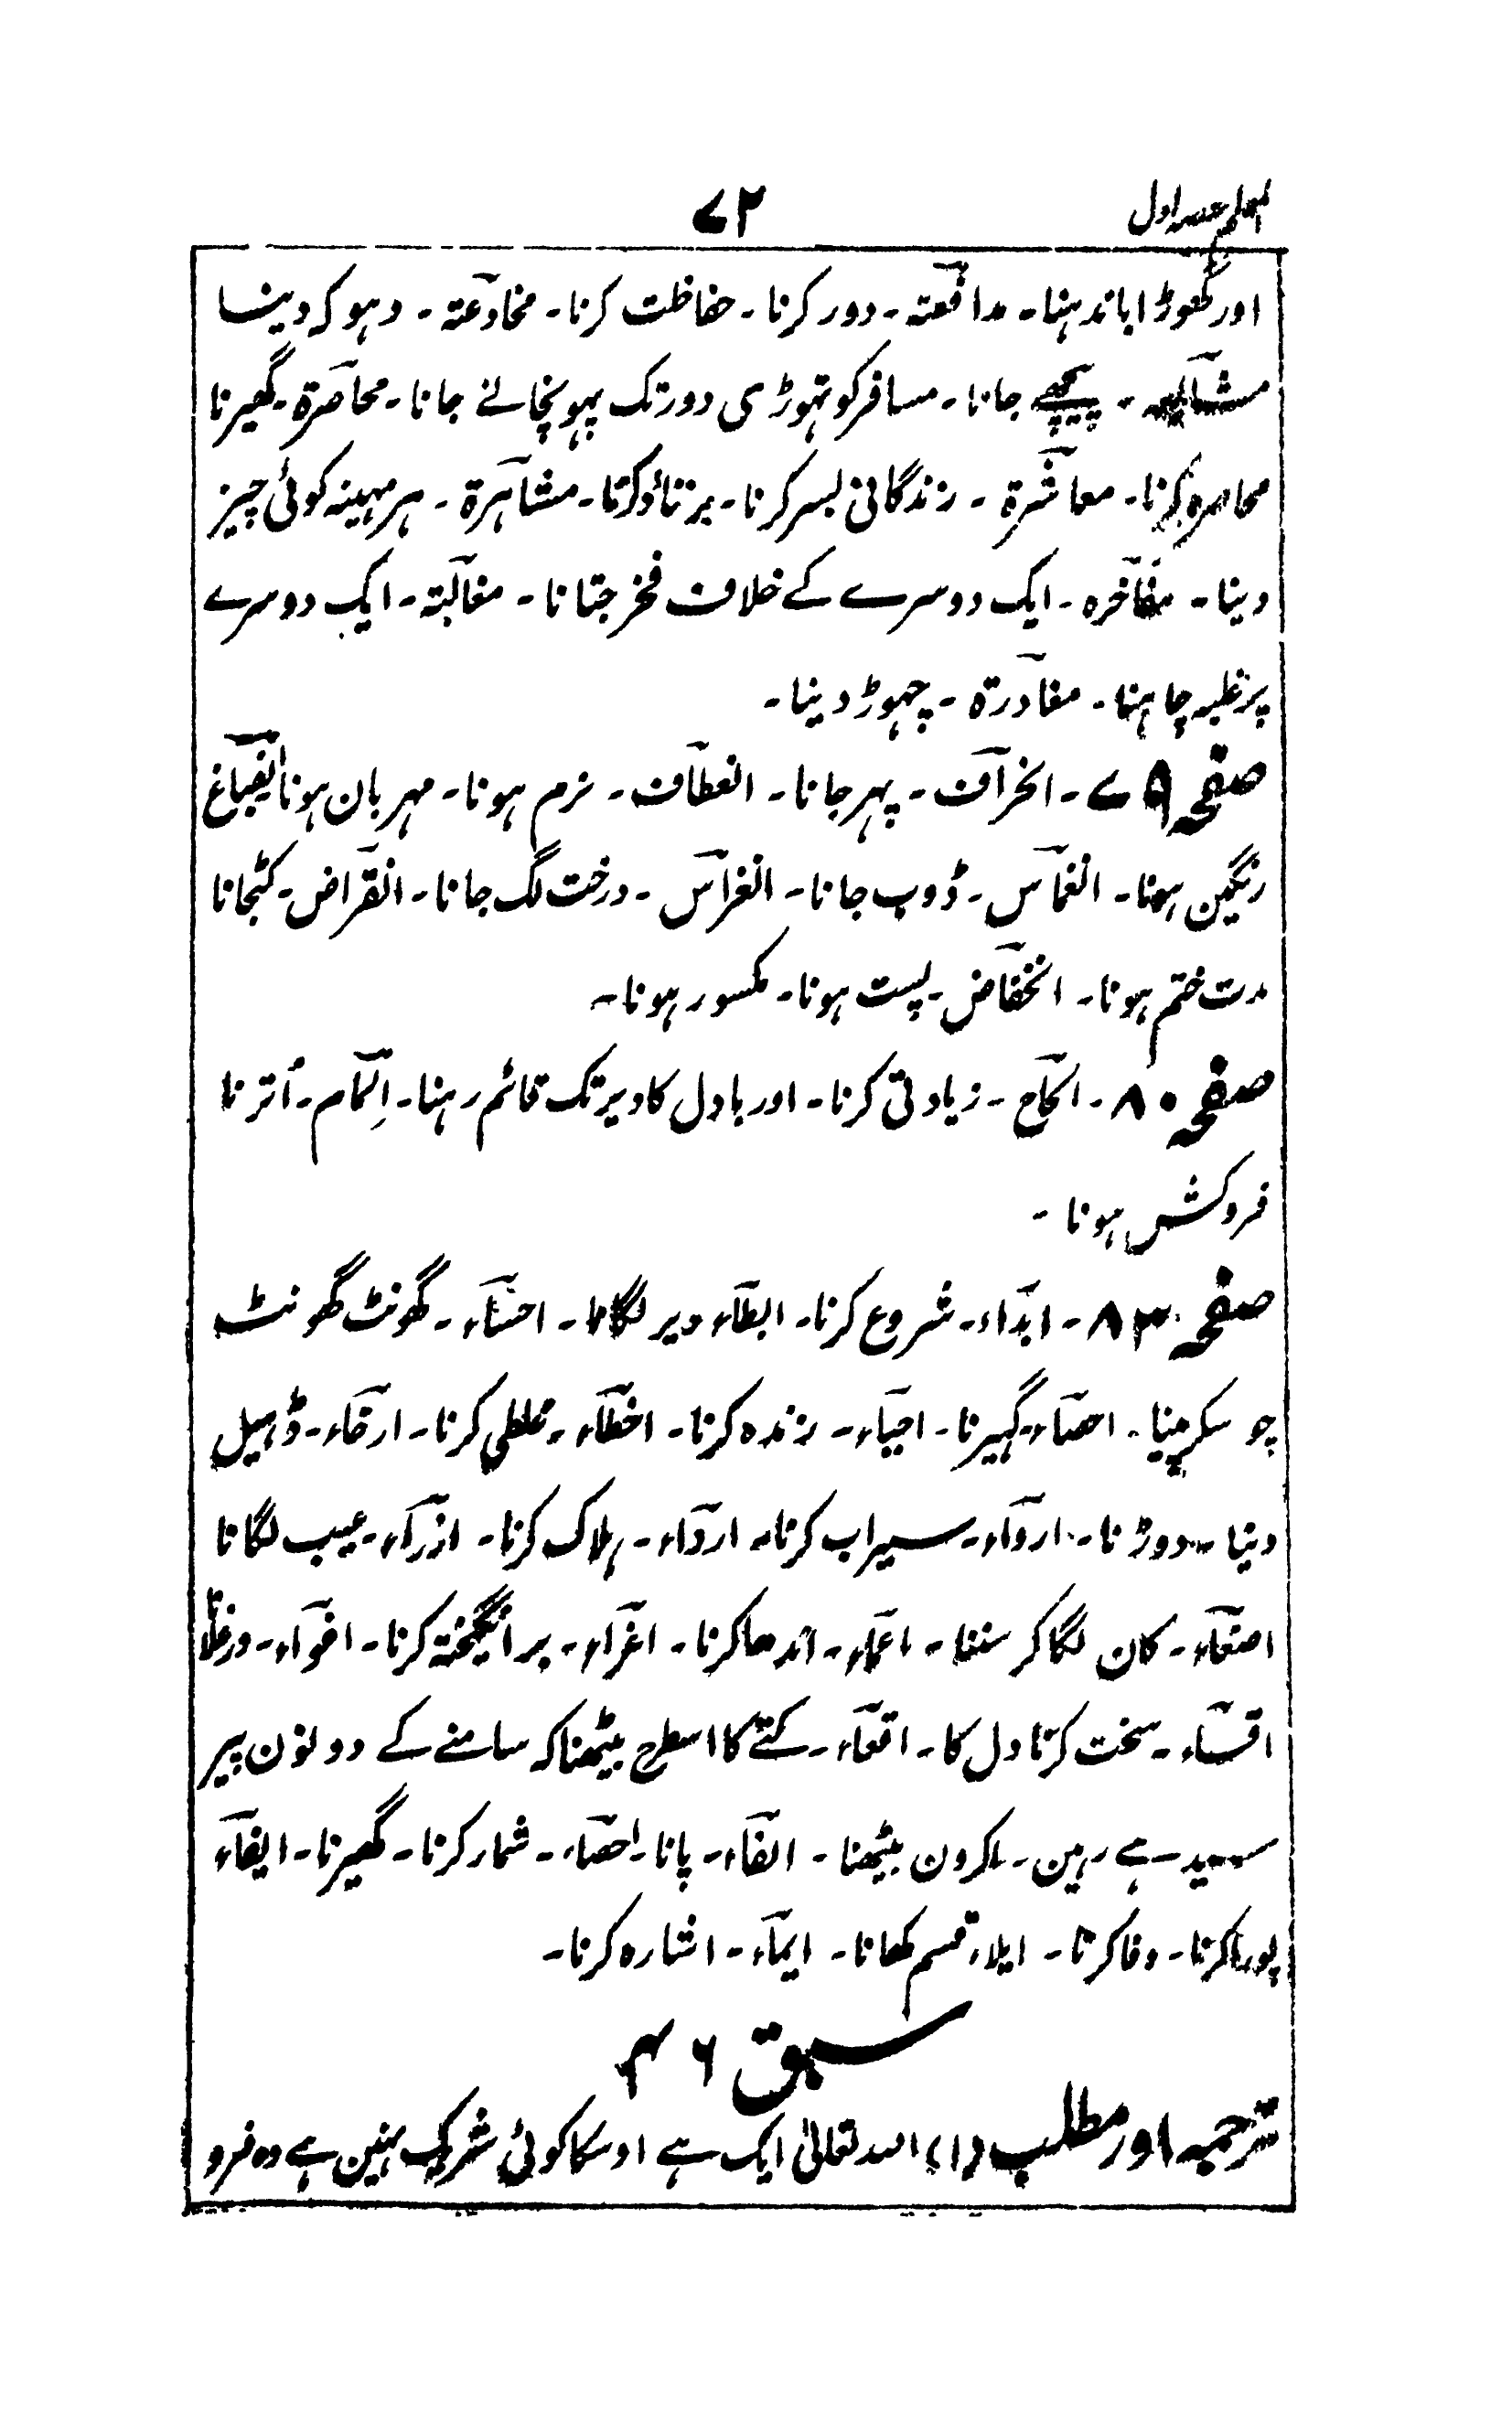 المعلم حصہ اول
۷۲
اور گھوڑا باندہنا۔ مدافعتہ۔ دور کرنا۔ حفاظت کرنا۔ مخادعتہ۔ دہوکہ دینا
پیچھے جانا۔ مسافر کو تہوڑی دور تک پہونچانے جانا۔ محاصرۃ۔ گھیرنا
محاصرہ کرنا۔ معاشرۃ۔ زندگانی بسر کرنا۔ برتاؤ کرنا۔ مشاہرۃ۔ ہر مہینہ کوئی چیز
دینا۔ مفاخرہ۔ ایک دوسرے کے خلاف فخر جتانا۔ مغالبتہ۔ ایک دوسرے
پر غلبہ چاہنا۔ مغادرۃ۔ چہوڑ دینا۔
صفحہ ۷۹۔ انحراف۔ پہر جانا۔ انعطاف۔ نرم ہونا۔ مہربان ہونا انصباغ
رنگین ہونا۔ انغماس۔ ڈوب جانا۔ انغراس۔ درخت لگ جانا۔ انقراض۔ کٹجانا
مدت ختم ہونا۔ انخفاض۔ پست ہونا۔ مکسور ہونا۔
صفحہ ۸۰۔ الحاح۔ زیادتی کرنا۔ اور بادل کا دیر تک قائم رہنا۔ اِلمام۔ اُترنا
فروکش ہونا۔
صفحہ ۸۳۔ ابداء۔ شروع کرنا۔ ابطاء دیر لگانا۔ احساء۔ گھونٹ گھونٹ
چوسکر پینا۔ احصاء۔ گہیرنا۔ احیاء۔ زندہ کرنا۔ اخطاء۔ غلطی کرنا۔ ارخاء۔ ڈہیل
دینا۔ دوڑنا۔ ارواء۔ سیراب کرنا۔ ارداء۔ ہلاک کرنا۔ ازراء۔ عیب لگانا
اصغاء۔ کان لگا کر سننا۔ اعماء۔ اندھا کرنا۔ اغراء۔ برانگیختہ کرنا۔ اغواء۔ ورغلانا
اقساء۔ سخت کرنا دل کا۔ اقعاء۔ کتے کا اسطرح بیٹھنا کہ سامنے کے دونون پیر
سیدہے رہین۔ اکرون بیٹھنا۔ الفاء۔ پانا۔ احصاء۔ شمار کرنا۔ گھیرنا۔ ایفاء
پورا کرنا۔ وفا کرنا۔ ایلاء قسم کھانا۔ ایماء۔ اشارہ کرنا۔
سبق ۴۶
ترجمہ اور مطلب (۱) اللہ تعالیٰ ایک ہے اوسکا کوئی شریک نہین ہے وہ فرو